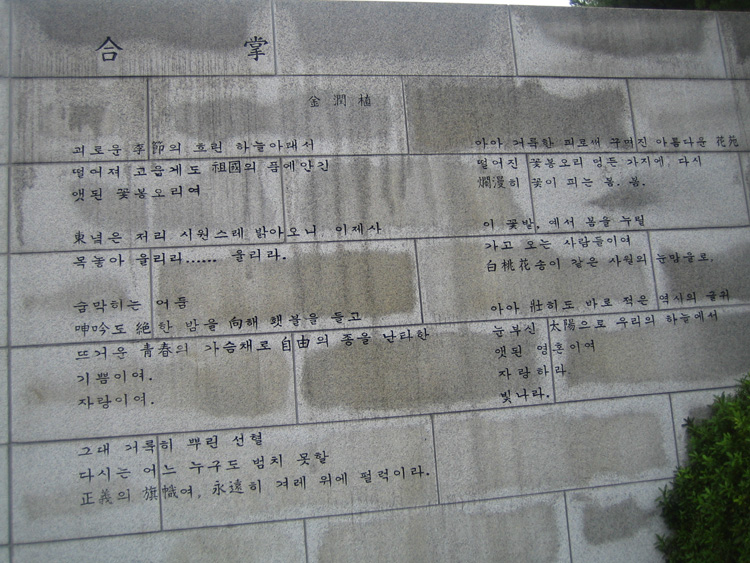 合 掌
金潤植
괴로운 季節의 흐린 하늘아래서
떨어져 고웁게도 祖國의 품에안긴
앳된 꽃봉오리여
東녘은 저리 시원스레 밝아오니 이제사
목놓아 울리라...... 울리라.
숨막히는 어둠
呻吟도 絶한 밤을 向해 횃불을 들고
뜨거운 青春의 가슴채로 自由의 종을 난타한
기쁨이여.
자랑이여.
그대 거룩히 뿌린 선혈
다시는 어느 누구도 범치 못할
正義의 旗幟여, 永遠히 겨레 위에 펄럭이라.
아아 거룩한 피로써 꾸며진 아름다운 花苑
떨어진 꽃봉오리 멍든 가지에, 다시
爛漫히 꽃이 피는 봄. 봄.
이 꽃밭, 예서 봄을 누릴
가고 오는 사람들이여
白桃花송이 같은 사월의 눈망울로.
아아 壯히도 바로 적은 역사의 글귀
눈부신 太陽으로 우리의 하늘에서
앳된 영혼이여
자랑하라
빛나라.